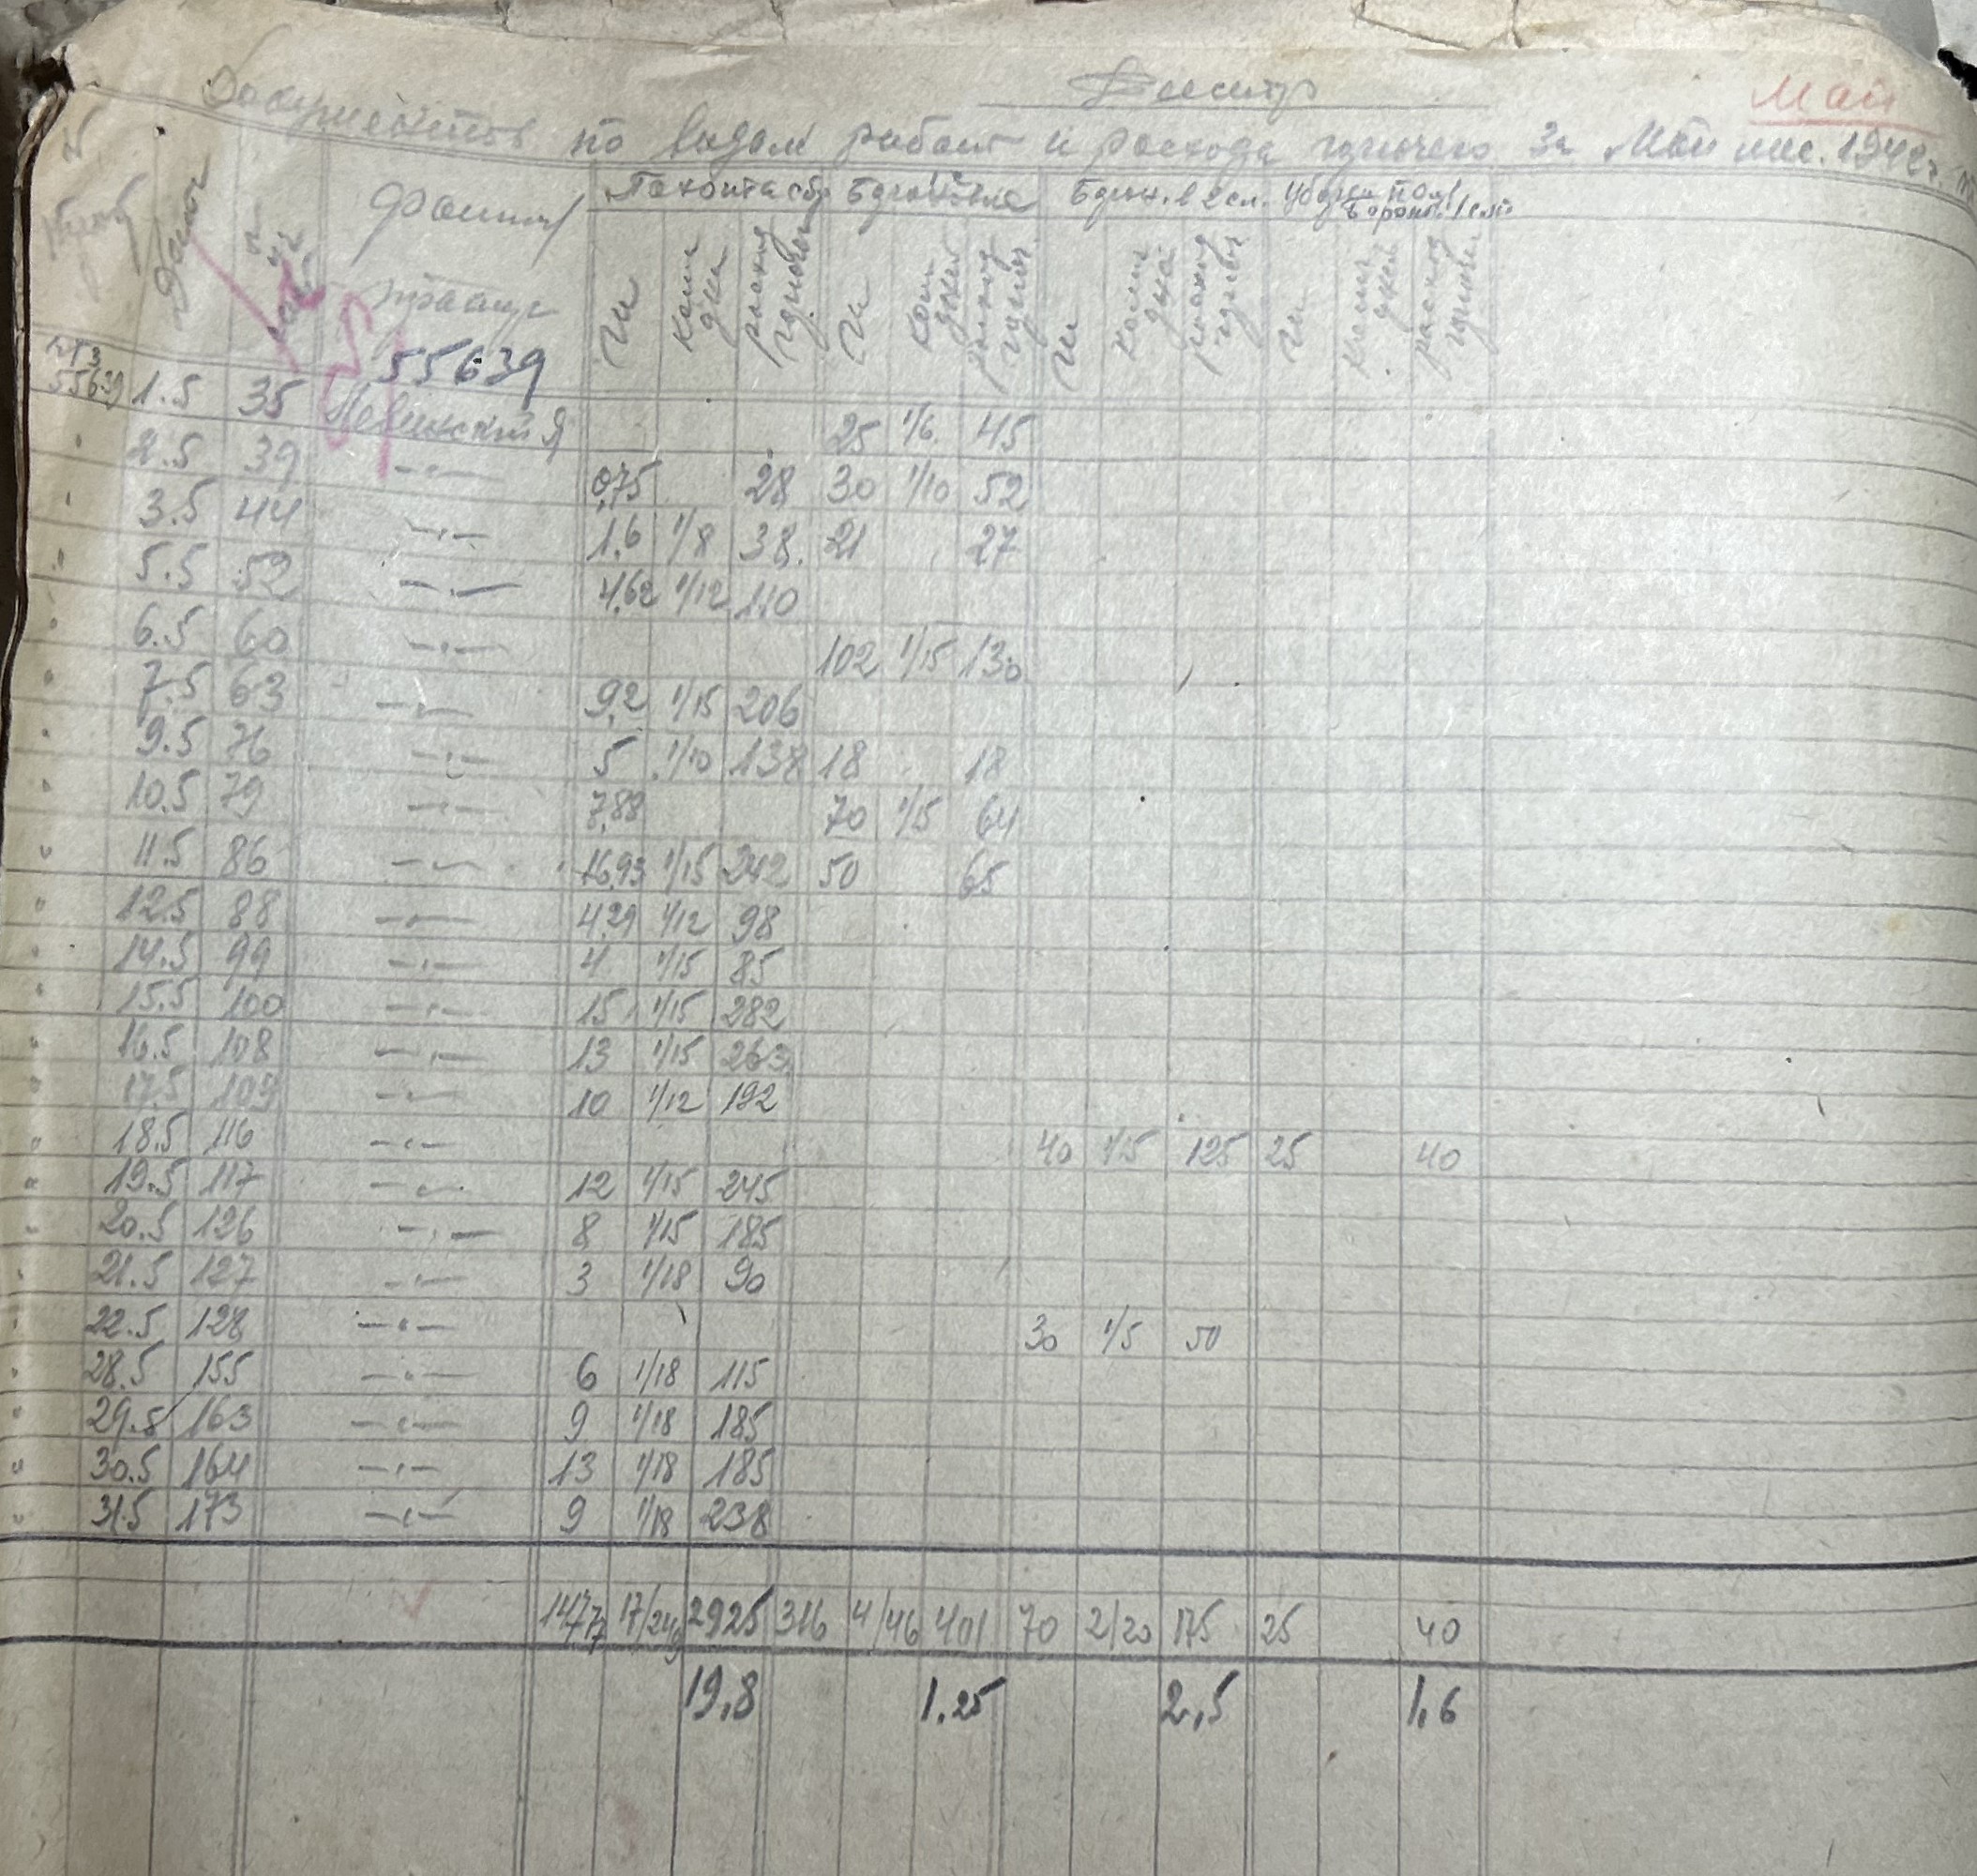 Май
Реестр
Документов по видам работ и расхода горючего за Май мес. 1942 г.
Дата
Фамил
тракт
Га
Колич
дней
расход
горючего
Га
Колич
дней
расход
горюч.
Га
Колич
дней
расход
горюч.
Га
Колич
дней
расход
горючего
Боронов. в 2 сл.
55639
55639 1.5 35 25 1/6 45
2.5 39 —"— 0,75 28 30 1/10 52
" 3.5 44 —"— 1,6 1/8 38 21 27
" 5.5 52 —"— 4,62 1/12 110
" 6.5 60 —"— 102 1/15 130
" 7.5 63 —"— 9,2 1/15 206
" 9.5 76 —"— 5 1/10 138 18 18
" 10.5 79 —"— 7,88 70 1/15 64
" 11.5 86 —"— 16,93 1/15 242 50 65
" 12.5 88 —"— 4,29 1/12 98
" 14.5 99 —"— 4 1/15 85
" 15.5 100 —"— 15 1/15 282
" 16.5 108 —"— 13 1/15 263
" 17.5 109 —"— 10 1/12 192
" 18.5 116 —"— 40 1/15 125 25 40
" 19.5 117 —"— 12 1/15 245
" 20.5 126 —"— 8 1/15 185
" 21.5 127 —"— 3 1/18 90
" 22.5 128 —"— 30 1/5 50
" 28.5 155 —"— 6 1/18 115
" 29.5 163 —"— 9 1/18 185
" 30.5 164 —"— 13 1/18 185
" 31.5 173 —"— 9 1/18 238
17/249 2925 316 4/46 401 70 2/20 175 25 40
19,8 1.25 2,5 1,6